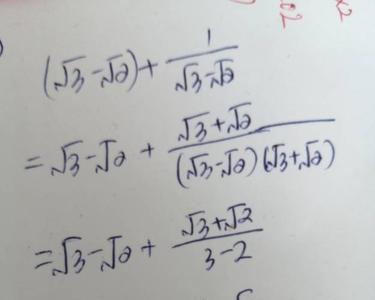 (√3-√2)+ 1/(√3-√2)
=√3-√2 + (√3+√2)/((√3-√2)(√3+√2))
=√3-√2 + (√3+√2)/(3-2)